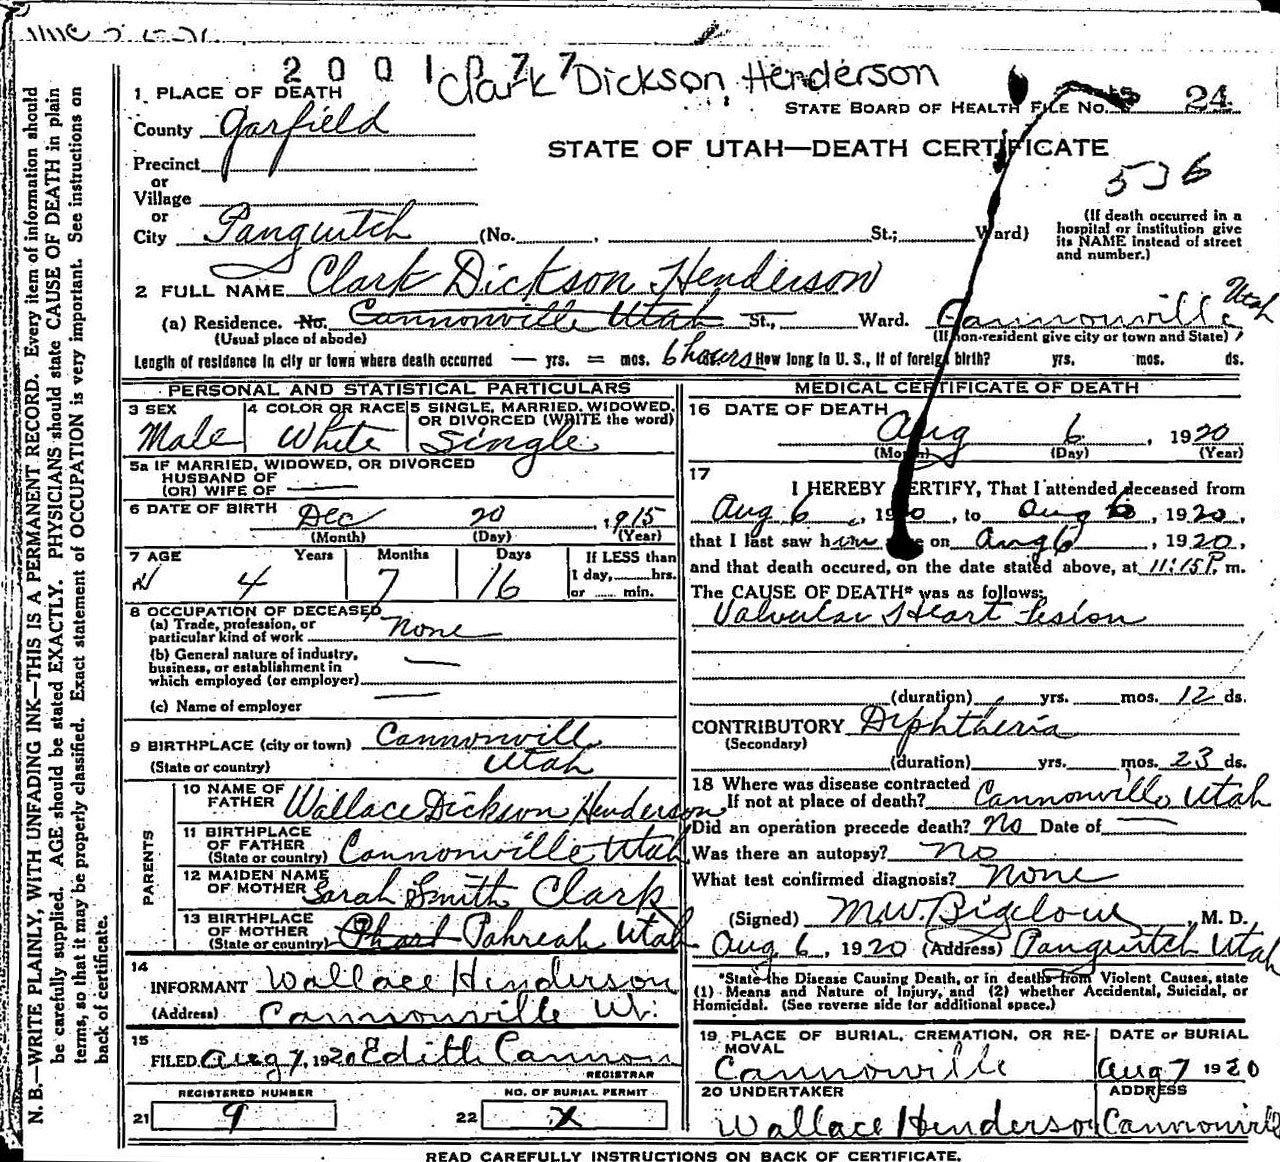 2001077
Clark Dickson Henderson
1 PLACE OF DEATH
STATE BOARD OF HEALTH FILE No. 24
County Garfield
STATE OF UTAH—DEATH CERTIFICATE
536
Precinct
or
Village
or
City Panguitch (No. , St.; Ward)
(If death occurred in a
hospital or institution give
its NAME instead of street
and number.)
2 FULL NAME Clark Dickson Henderson
(a) Residence. No. Cannonville Utah St., Ward. Cannonville Utah
(Usual place of abode) (If non-resident give city or town and State)
Length of residence in city or town where death occurred — yrs. = mos. 6 hours How long in U. S., if of foreign birth? yrs. mos. ds.
PERSONAL AND STATISTICAL PARTICULARS
3 SEX
Male
4 COLOR OR RACE
White
5 SINGLE, MARRIED, WIDOWED,
OR DIVORCED (WRITE the word)
Single
5a IF MARRIED, WIDOWED, OR DIVORCED
HUSBAND OF
(OR) WIFE OF —
6 DATE OF BIRTH Dec 20, 1915
(Month) (Day) (Year)
7 AGE Years Months Days If LESS than
4 7 16 1 day, hrs.
or min.
8 OCCUPATION OF DECEASED
(a) Trade, profession, or
particular kind of work None
(b) General nature of industry,
business, or establishment in
which employed (or employer) —
(c) Name of employer —
9 BIRTHPLACE (city or town) Cannonvill
(State or country) Utah
PARENTS
10 NAME OF
FATHER Wallace Dickson Henderson
11 BIRTHPLACE
OF FATHER
(State or country) Cannonville Utah
12 MAIDEN NAME
OF MOTHER Sarah Smith Clark
13 BIRTHPLACE
OF MOTHER
(State or country) Pahreah Utah
14
INFORMANT Wallace Henderson
(Address) Cannonville Ut.
15
FILED Aug 7, 1920 Edith Cannon
REGISTRAR
REGISTERED NUMBER
21 9
NO. OF BURIAL PERMIT
22 X
MEDICAL CERTIFICATE OF DEATH
16 DATE OF DEATH
Aug 6, 1920
(Month) (Day) (Year)
17
I HEREBY CERTIFY, That I attended deceased from
Aug 6, 1920, to Aug 6, 1920,
that I last saw him alive on Aug 6, 1920,
and that death occured, on the date stated above, at 11:15 P. m.
The CAUSE OF DEATH* was as follows:
Valvular Heart Lesion
(duration) yrs. mos. 12 ds.
CONTRIBUTORY Diphtheria
(Secondary)
(duration) yrs. mos. 23 ds.
18 Where was disease contracted
If not at place of death? Cannonville Utah
Did an operation precede death? No Date of —
Was there an autopsy? no
What test confirmed diagnosis? None
(Signed) M.W. Bigelow, M. D.
Aug 6, 1920 (Address) Panguitch Utah
*State the Disease Causing Death, or in deaths from Violent Causes, state
(1) Means and Nature of Injury, and (2) whether Accidental, Suicidal, or
Homicidal. (See reverse side for additional space.)
19 PLACE OF BURIAL, CREMATION, OR RE-
MOVAL
Cannonville
DATE OF BURIAL
Aug 7 1920
20 UNDERTAKER
Wallace Henderson
ADDRESS
Cannonville
READ CAREFULLY INSTRUCTIONS ON BACK OF CERTIFICATE.
N. B.—WRITE PLAINLY, WITH UNFADING INK—THIS IS A PERMANENT RECORD. Every item of information should
be carefully supplied. AGE should be stated EXACTLY. PHYSICIANS should state CAUSE OF DEATH in plain
terms, so that it may be properly classified. Exact statement of OCCUPATION is very important. See instructions on
back of certificate.